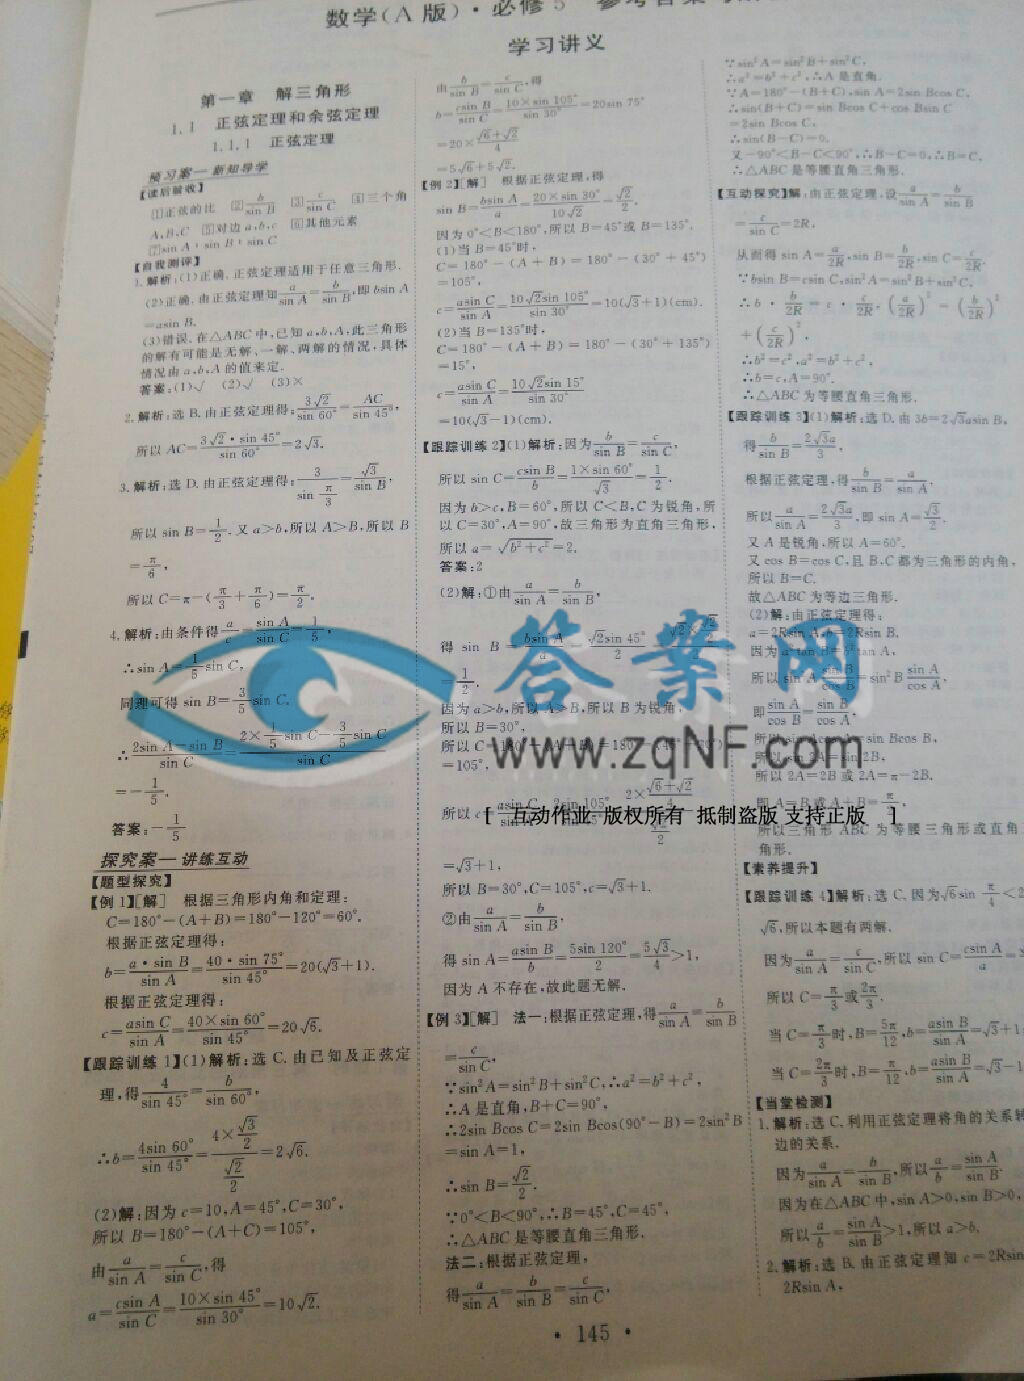 数学(A版)·必修5
学习讲义
第一章 解三角形
1.1 正弦定理和余弦定理
1.1.1 正弦定理
预习案—新知导学
【读后验收】
①正弦的比 ②b/sin B ③c/sin C ④三个角
A,B,C ⑤对边a,b,c ⑥其他元素
⑦sin A∶sin B∶sin C
【自我测评】
1.解析:(1)正确.正弦定理适用于任意三角形.
(2)正确.由正弦定理知a/sin A=b/sin B,即bsin A
=asin B.
(3)错误.在△ABC中,已知a,b,A,此三角形
的解有可能是无解、一解、两解的情况,具体
情况由a,b,A的值来定.
答案:(1)√ (2)√ (3)×
2.解析:选B.由正弦定理得:3√2/sin 60°=AC/sin 45°,
所以AC=3√2·sin 45°/sin 60°=2√3.
3.解析:选D.由正弦定理得:3/sin π/3=√3/sin B,
所以sin B=1/2.又a>b,所以A>B,所以B
=π/6,
所以C=π-(π/3+π/6)=π/2.
4.解析:由条件得a/c=sin A/sin C=1/5,
∴sin A=1/5sin C,
同理可得sin B=3/5sin C.
∴2sin A-sin B/sin C=2×1/5sin C-3/5sin C/sin C
=-1/5.
答案:-1/5
探究案—讲练互动
【题型探究】
【例1】[解] 根据三角形内角和定理:
C=180°-(A+B)=180°-120°=60°.
根据正弦定理得:
b=a·sin B/sin A=40·sin 75°/sin 45°=20(√3+1).
根据正弦定理得:
c=asin C/sin A=40×sin 60°/sin 45°=20√6.
【跟踪训练1】(1)解析:选C.由已知及正弦定
理,得4/sin 45°=b/sin 60°,
∴b=4sin 60°/sin 45°=4×√3/2/√2/2=2√6.
(2)解:因为c=10,A=45°,C=30°,
所以B=180°-(A+C)=105°,
由a/sin A=c/sin C,得
a=csin A/sin C=10×sin 45°/sin 30°=10√2.
由b/sin B=c/sin C,得
b=csin B/sin C=10×sin 105°/sin 30°=20sin 75°
=20×√6+√2/4
=5√6+5√2.
【例2】[解] 根据正弦定理,得
sin B=bsin A/a=20×sin 30°/10√2=√2/2.
因为0°<B<180°,所以B=45°或B=135°.
(1)当B=45°时,
C=180°-(A+B)=180°-(30°+45°)
=105°,
c=asin C/sin A=10√2sin 105°/sin 30°=10(√3+1)(cm).
(2)当B=135°时,
C=180°-(A+B)=180°-(30°+135°)
=15°,
c=asin C/sin A=10√2sin 15°/sin 30°
=10(√3-1)(cm).
【跟踪训练2】(1)解析:因为b/sin B=c/sin C,
所以sin C=csin B/b=1×sin 60°/√3=1/2.
因为b>c,B=60°,所以C<B,C为锐角,所
以C=30°,A=90°,故三角形为直角三角形,
所以a=√b²+c²=2.
答案:2
(2)解:①由a/sin A=b/sin B,
得sin B=bsin A/a=√2sin 45°/2
=1/2.
因为a>b,所以A>B,所以B为锐角,
所以B=30°,
所以C=180°-(A+B)=180°-(45°+30°)
=105°,
所以c=asin C/sin A=2sin 105°
2×√6+√2/4/√2/2
=√3+1.
所以B=30°,C=105°,c=√3+1.
②由a/sin A=b/sin B,
得sin A=asin B/b=5sin 120°/2=5√3/4>1,
因为A不存在,故此题无解.
【例3】[解] 法一:根据正弦定理,得a/sin A=b/sin B
=c/sin C,
∵sin²A=sin²B+sin²C,∴a²=b²+c²,
∴A是直角,B+C=90°,
∴2sin Bcos C=2sin Bcos(90°-B)=2sin²B
=sin A=1,
∴sin B=√2/2.
∵0°<B<90°,∴B=45°,C=45°,
∴△ABC是等腰直角三角形.
法二:根据正弦定理,
得a/sin A=b/sin B=c/sin C,
∵sin²A=sin²B+sin²C,
∴a²=b²+c²,∴A是直角.
∵A=180°-(B+C),sin A=2sin Bcos C,
∴sin(B+C)=sin Bcos C+cos Bsin C
=2sin Bcos C,
∴sin(B-C)=0,
又-90°<B-C<90°,∴B-C=0,∴B=C,
∴△ABC是等腰直角三角形.
【互动探究】解:由正弦定理,设a/sin A=b/sin B
=c/sin C=2R,
从而得sin A=a/2R,sin B=b/2R,sin C=c/2R.
∵bsin B=csin C,sin²A=sin²B+sin²C,
∴b·b/2R=c·c/2R,(a/2R)²=(b/2R)²
+(c/2R)²,
∴b²=c²,a²=b²+c²,
∴b=c,A=90°.
∴△ABC为等腰直角三角形.
【跟踪训练3】(1)解析:选D.由3b=2√3asin B,
得b/sin B=2√3a/3,
根据正弦定理,得b/sin B=a/sin A,
所以a/sin A=2√3a/3,即sin A=√3/2.
又A是锐角,所以A=60°.
又cos B=cos C,且B,C都为三角形的内角,
所以B=C.
故△ABC为等边三角形.
(2)解:由正弦定理得:
a=2Rsin A,b=2Rsin B.
因为a²tan B=b²tan A,
所以sin²A sin B/cos B=sin²B sin A/cos A,
即sin A/cos B=sin B/cos A,
所以sin Acos A=sin Bcos B,
所以sin 2A=sin 2B,
所以2A=2B或2A=π-2B,
即A=B或A+B=π/2,
所以三角形ABC为等腰三角形或直角三
角形.
【素养提升】
【跟踪训练4】解析:选C.因为√6sin π/4<2
√6,所以本题有两解.
因为a/sin A=c/sin C,所以sin C=csin A/a=
所以C=π/3或2π/3.
当C=π/3时,B=5π/12,b=asin B/sin A=√3+1
当C=2π/3时,B=π/12,b=asin B/sin A=√3-1
【当堂检测】
1.解析:选C.利用正弦定理将角的关系转
边的关系.
因为a/sin A=b/sin B,所以a/b=sin A/sin B.
因为在△ABC中,sin A>0,sin B>0,
所以a/b=sin A/sin B>1,所以a>b.
2.解析:选B.由正弦定理知c=2Rsin
2Rsin A,
·145·
答案网
www.zqNF.com
[ 互动作业 版权所有 抵制盗版 支持正版 ]